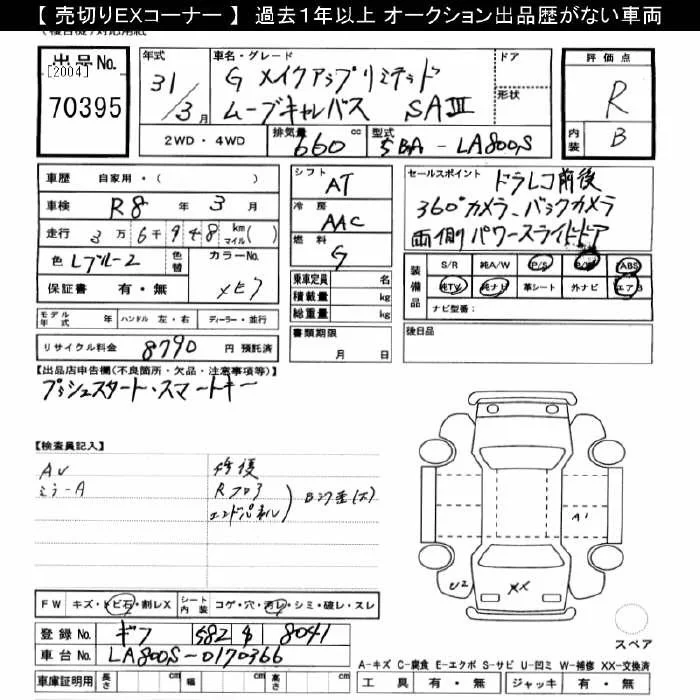 【 売切りEXコーナー 】 過去1年以上 オークション出品歴がない車両
出品No.
[2004]
70395
年式
31/3月
車名・グレード
G メイクアップリミテッド
ムーブキャンバス SAⅢ
ドア
形状
評価点
R
内装
B
2WD・4WD
排気量 660 cc
型式 5BA - LA800S
車歴 自家用・( )
車検 R8年 3月
走行 3万6千948 km マイル( )
色 Lブルー2
色替
カラーNo.
保証書 有・無
シフト
AT
冷房
AAC
燃料
G
乗車定員 名
積載量 kg
総重量 kg
セールスポイント ドラレコ前後
360°カメラ、バックカメラ
両側パワースライドドア
装備品
S/R 純A/W P/S P/W ABS
純TV 純ナビ 革シート 外ナビ エアB
ナビ型番:
モデル年式 年 ハンドル 左・右 ディーラー・並行
リサイクル料金 8790 円 預託済
書類期限
月 日
後日品
【出品店申告欄(不良箇所・欠品・注意事項等)】
プッシュスタート・スマートキー
【検査員記入】
AU
ミラーA
修復
Rフロア
エンドパネル
FW キズ・トビ石・割レX
シート内装 コゲ・穴・汚レ・シミ・破レ・スレ
登録No. ギフ 582 8041
車台No. LA800S-0170366
車庫証明用 長さ cm 幅 cm 高さ cm
A1
U2
XX
スペア
A-キズ C-腐食 E-エクボ S-サビ U-凹ミ W-補修 XX-交換済
工具 有・無 ジャッキ 有・無